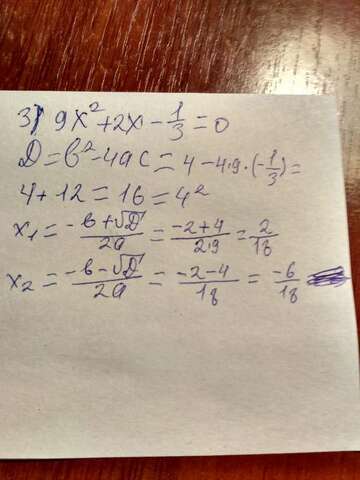 3) 9x² + 2x - 1/3 = 0
D = b² - 4ac = 4 - 4·9·(-1/3) =
4 + 12 = 16 = 4²
x₁ = (-b + √D)/2a = (-2+4)/2·9 = 2/18
x₂ = (-b - √D)/2a = (-2-4)/18 = -6/18